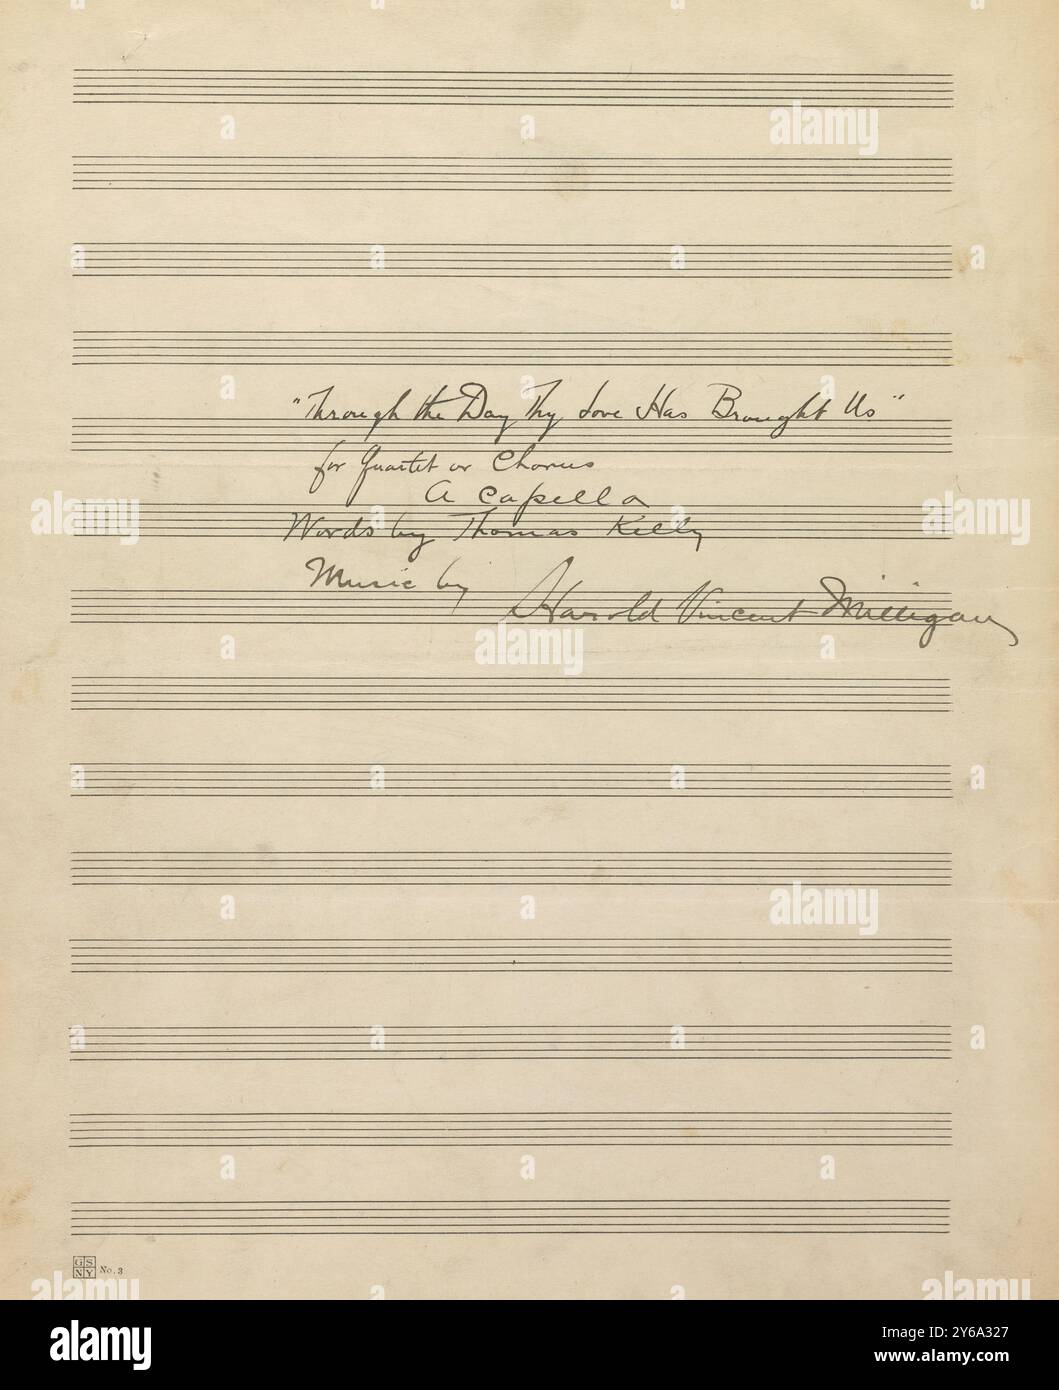 "Through the Day Thy Love Has Brought Us"
for Quartet or Chorus
A Capella
Words by Thomas Kelly
Music by Harold Vincent Milligan
GS
NY No. 3
alamy
Image ID: 2Y6A327
www.alamy.com